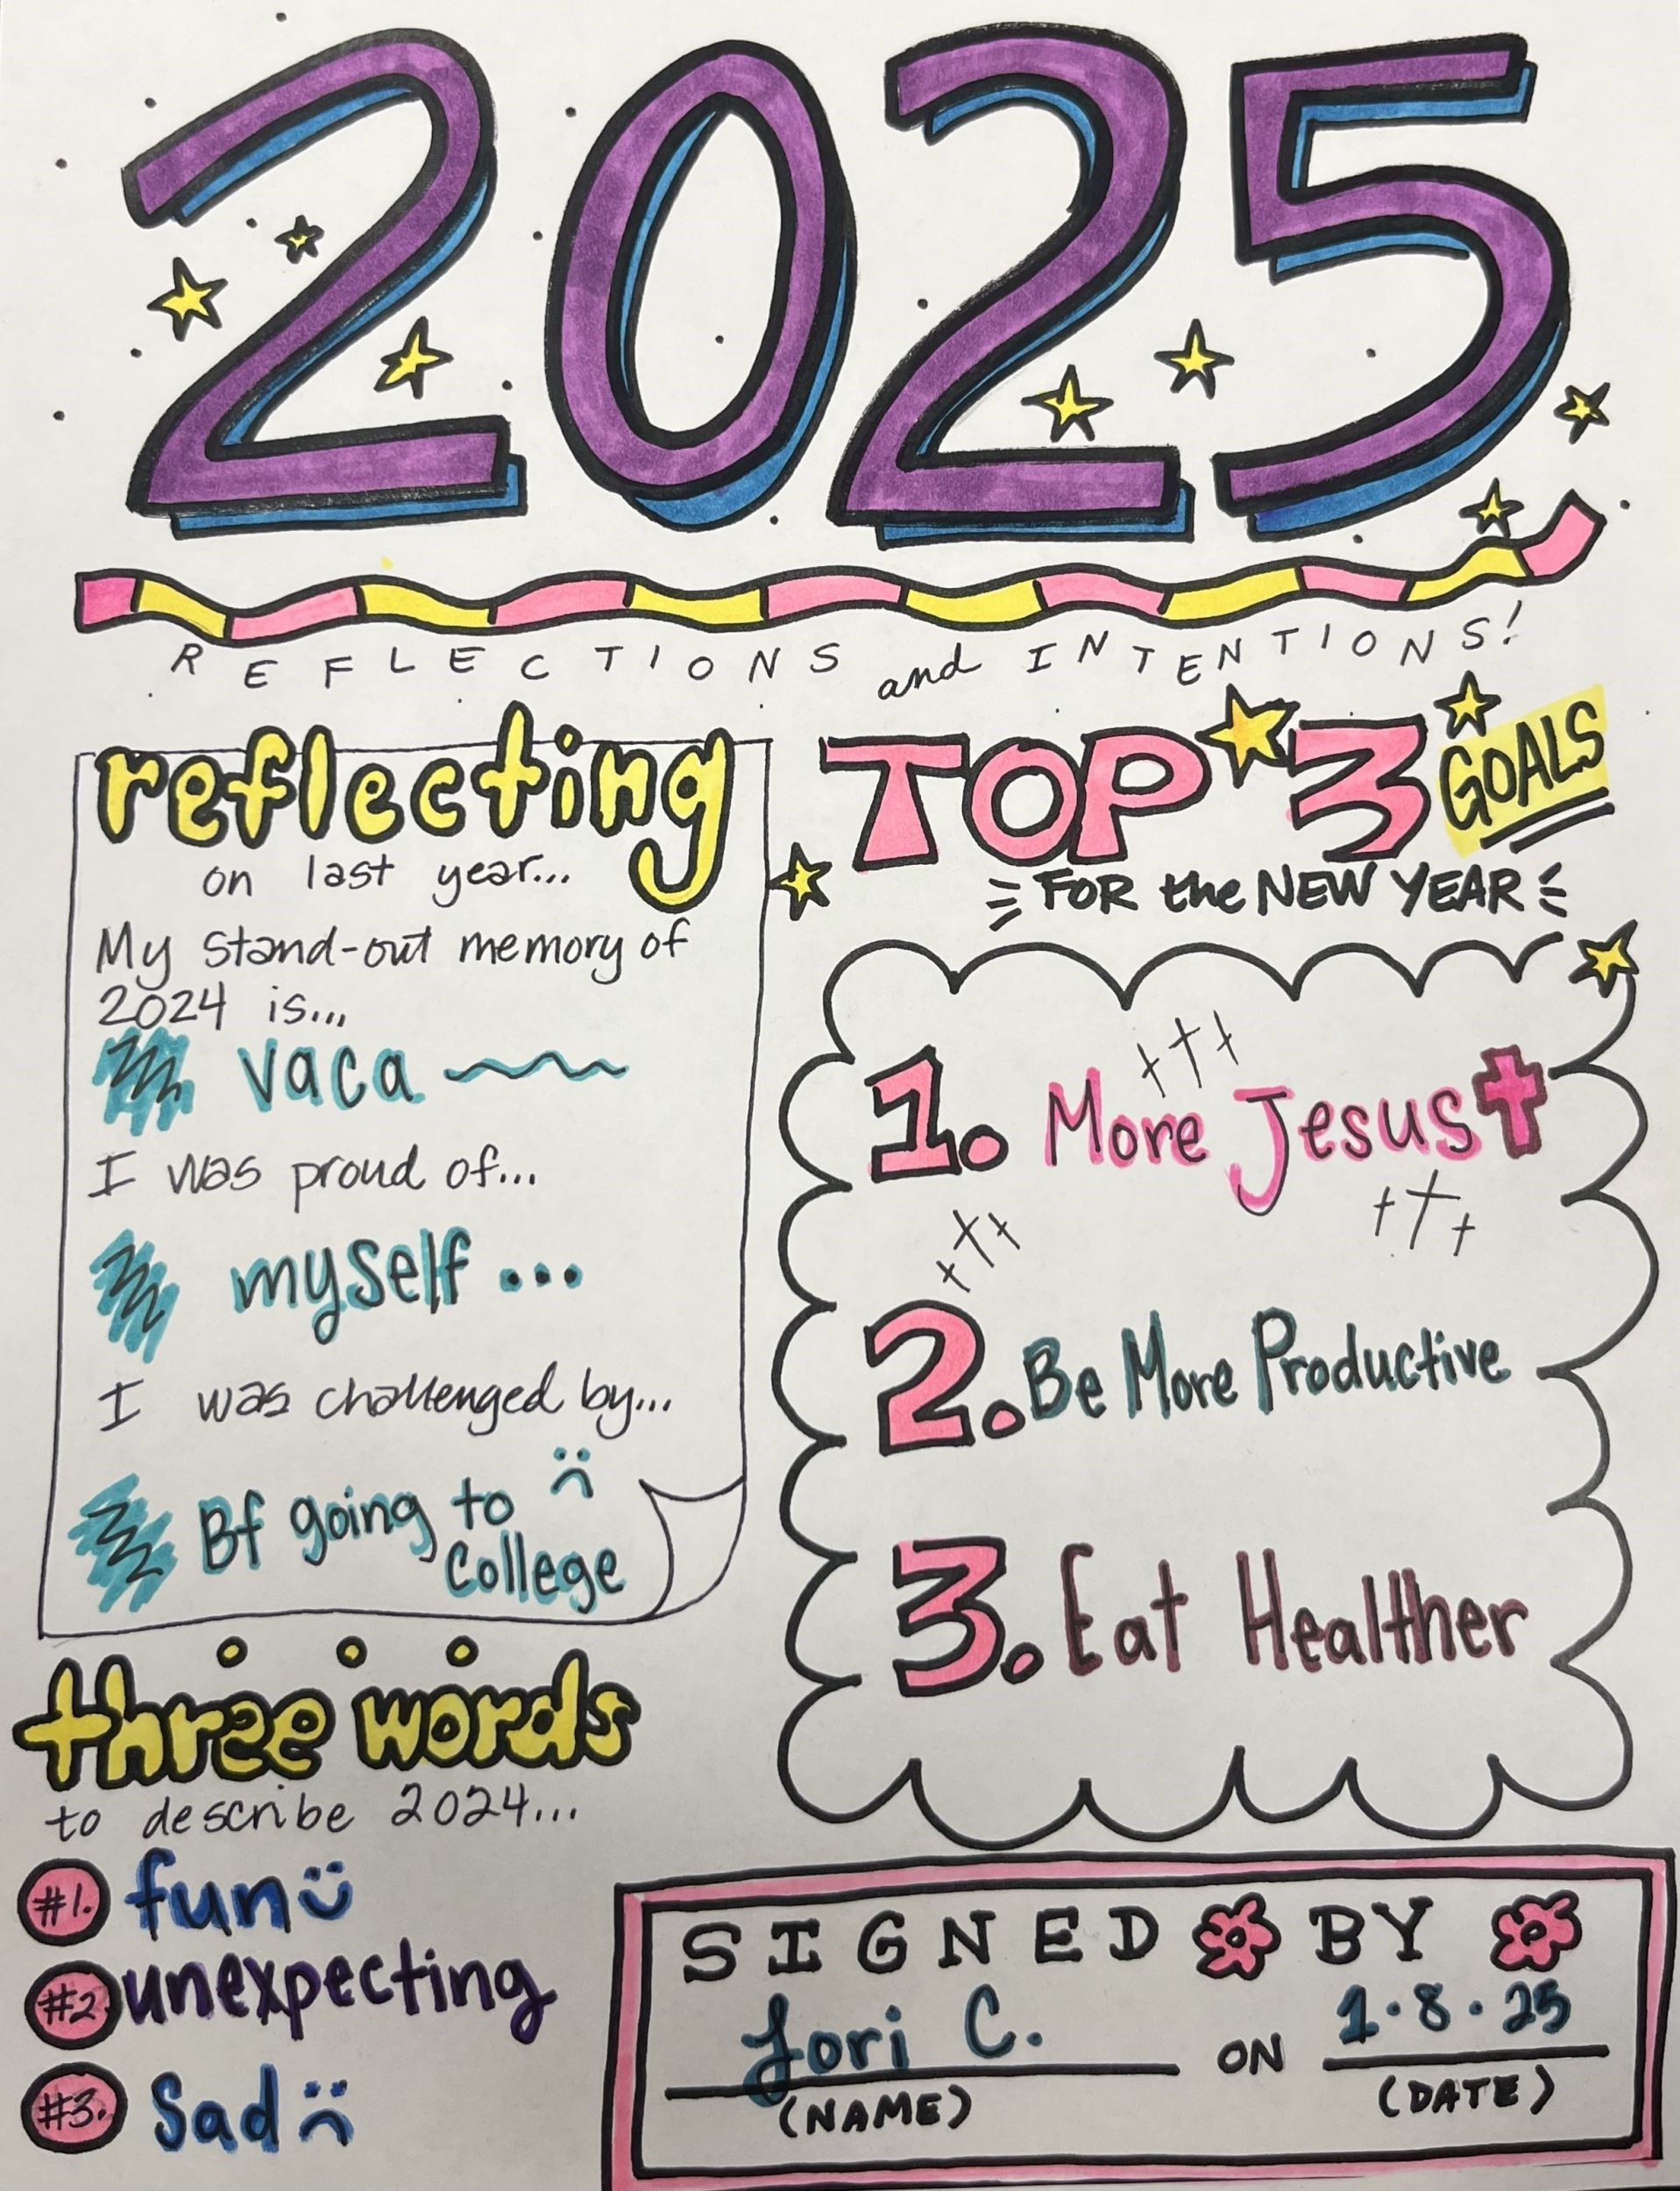 2025
REFLECTIONS and INTENTIONS!
reflecting
on last year...
My stand-out memory of
2024 is...
vaca
I was proud of...
myself ...
I was challenged by...
Bf going to :(
College
three words
to describe 2024...
#1. fun :)
#2 unexpecting
#3. Sad :(
TOP 3 GOALS
FOR the NEW YEAR
1. More Jesus
2. Be More Productive
3. Eat Healther
SIGNED BY
Lori C. ON 1.8.25
(NAME) (DATE)